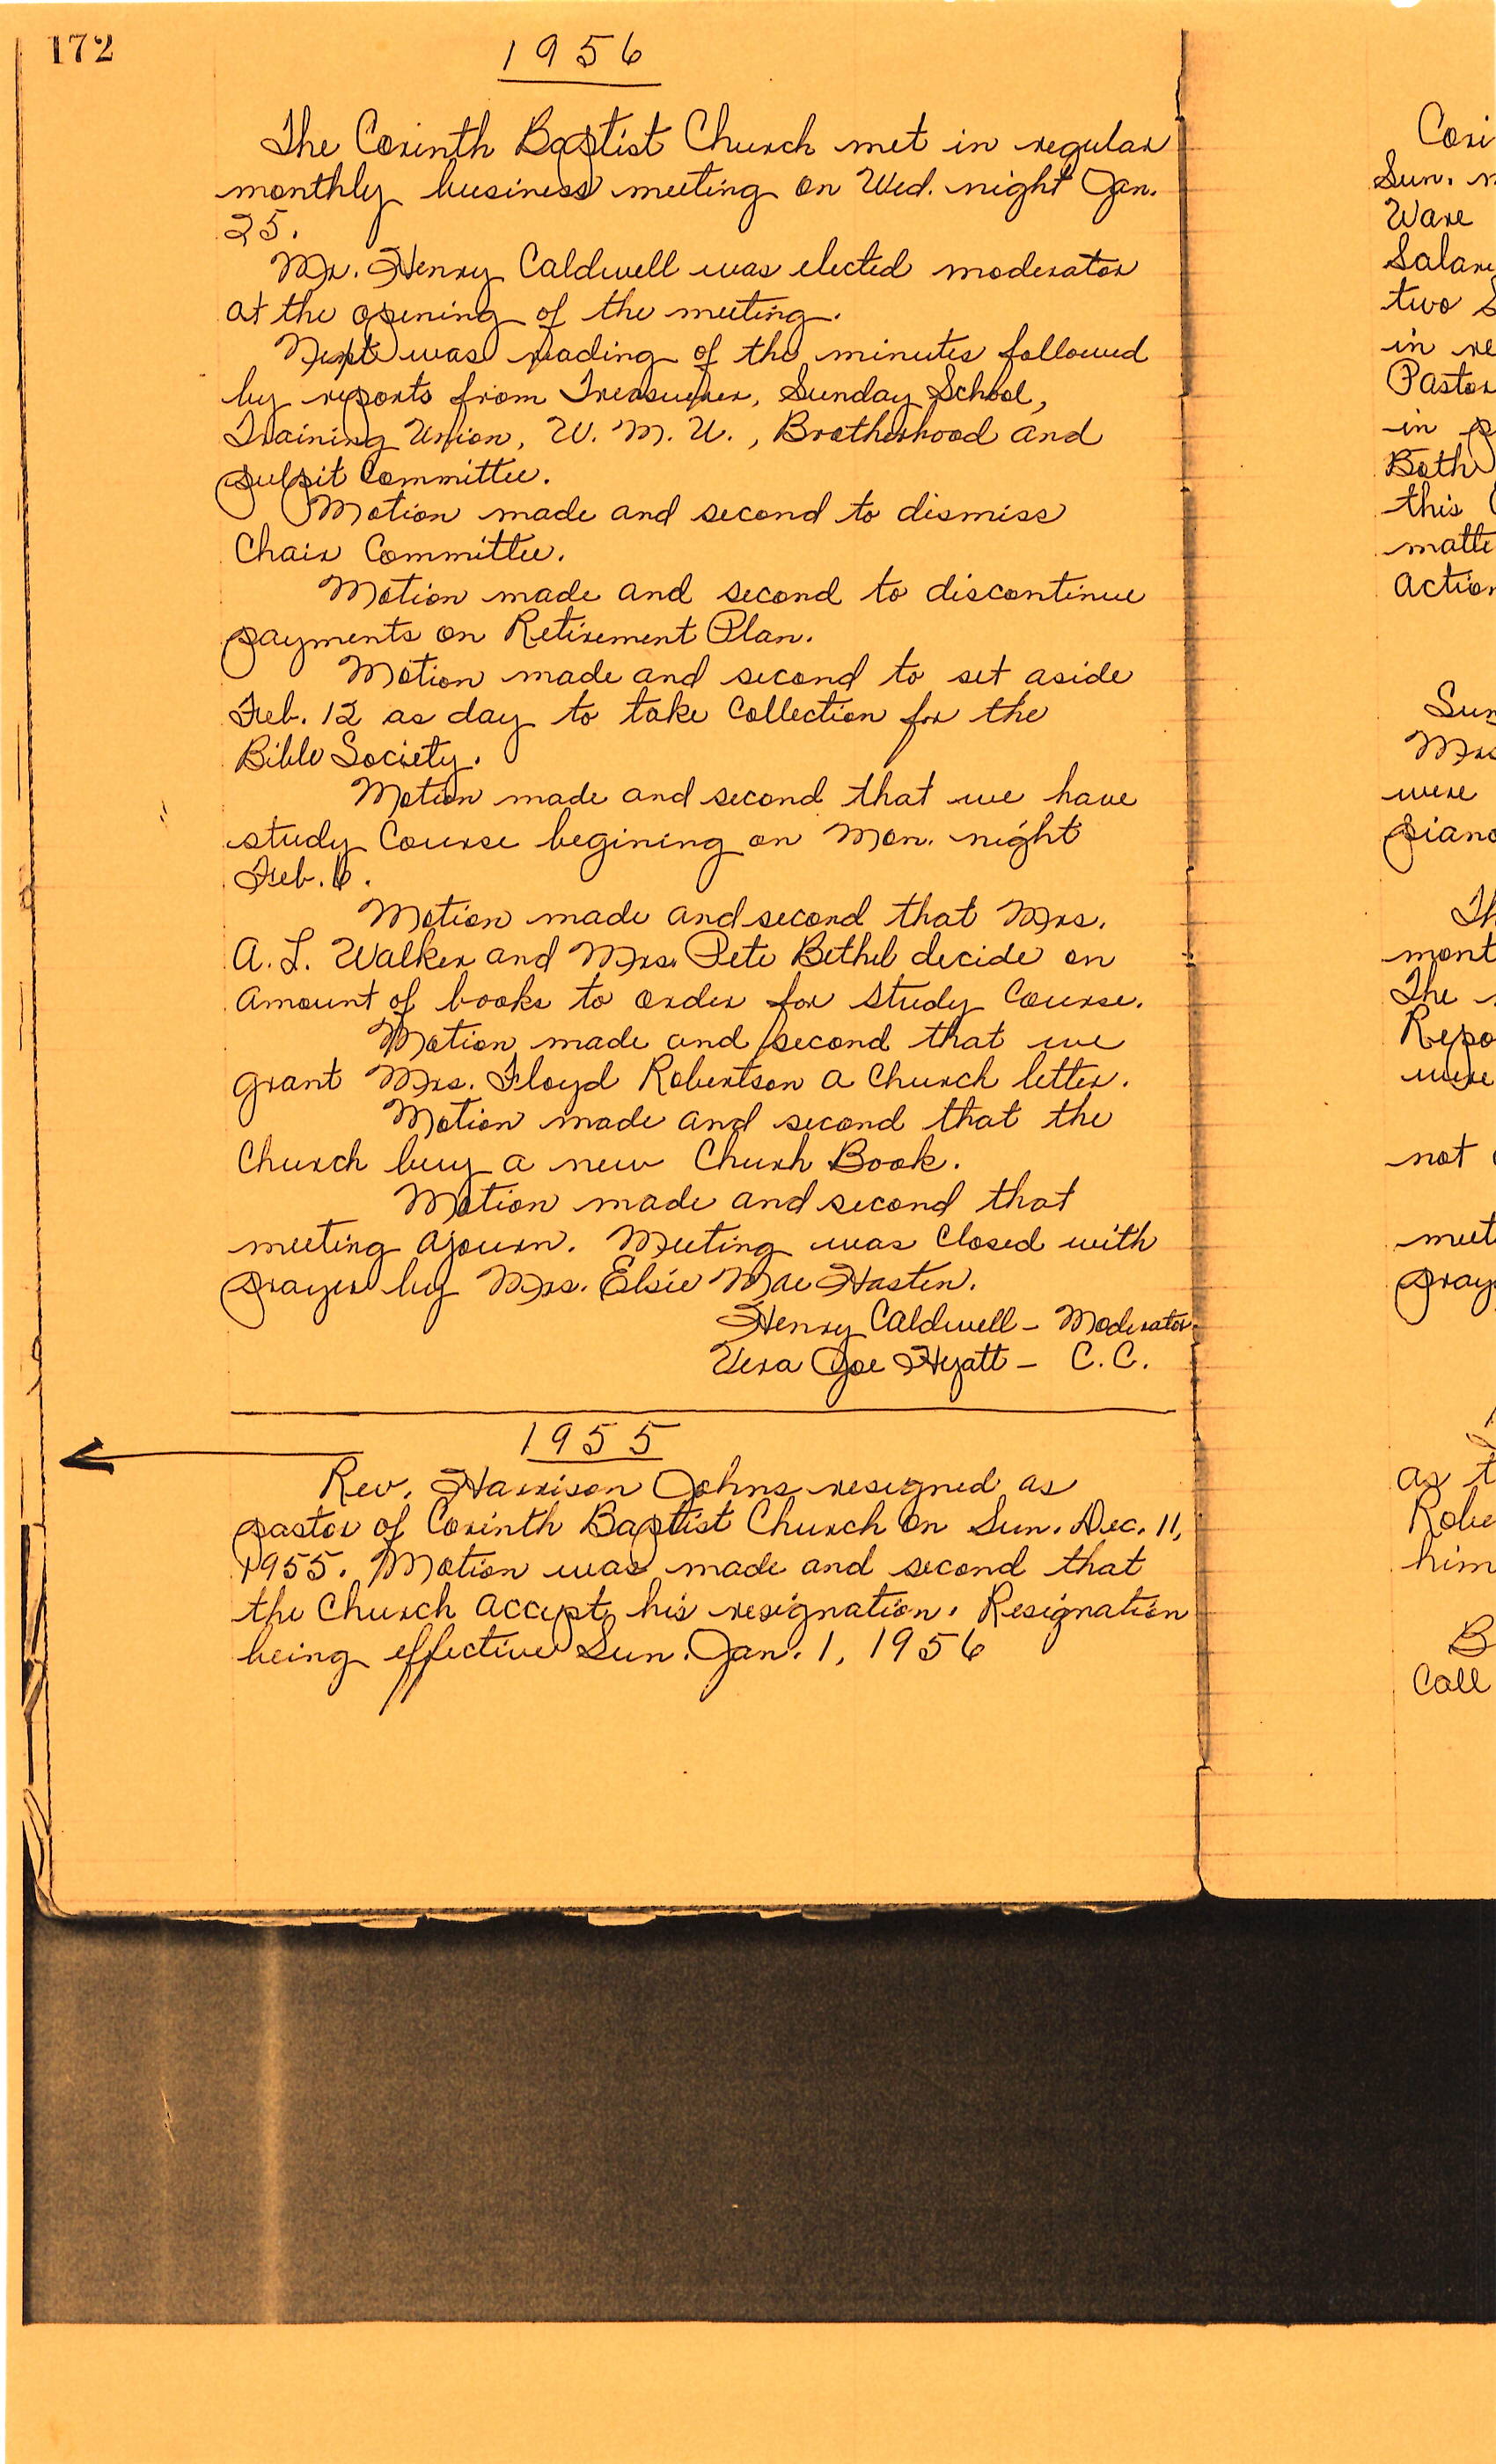 172
1956
The Corinth Baptist Church met in regular
monthly business meeting on Wed. night Jan.
25.
Mr. Henry Caldwell was elected moderator
at the opening of the meeting.
Next was reading of the minutes followed
by reports from Treasurer, Sunday School,
Training Union, W. M. U., Brotherhood and
pulpit Committee.
Motion made and second to dismiss
Chair Committee.
Motion made and second to discontinue
payments on Retirement Plan.
Motion made and second to set aside
Feb. 12 as day to take Collection for the
Bible Society.
Motion made and second that we have
study Course begining on Mon. night
Feb. 6.
Motion made and second that Mrs.
A. L. Walker and Mrs. Pete Bethel decide on
amount of books to order for Study Course.
Motion made and second that we
grant Mrs. Floyd Robertson a Church letter.
Motion made and second that the
Church buy a new Churh Book.
Motion made and second that
meeting ajourn. Meeting was Closed with
prayer by Mrs. Elsie Mae Hasten.
Henry Caldwell - Moderator
Vera Joe Hyatt - C. C.
1955
Rev. Harrison Johns resigned as
pastor of Corinth Baptist Church on Sun. Dec. 11,
1955. Motion was made and second that
the Church accept his resignation. Resignation
being effective Sun. Jan. 1, 1956
Cori
Sun.
Ware
Salary
two S
in re
Pastor
in p
Both
this
matte
action
Sun
Mrs
were
piano
Th
mont
The
Repo
were
not
meet
pray
as t
Robe
him
B
Call